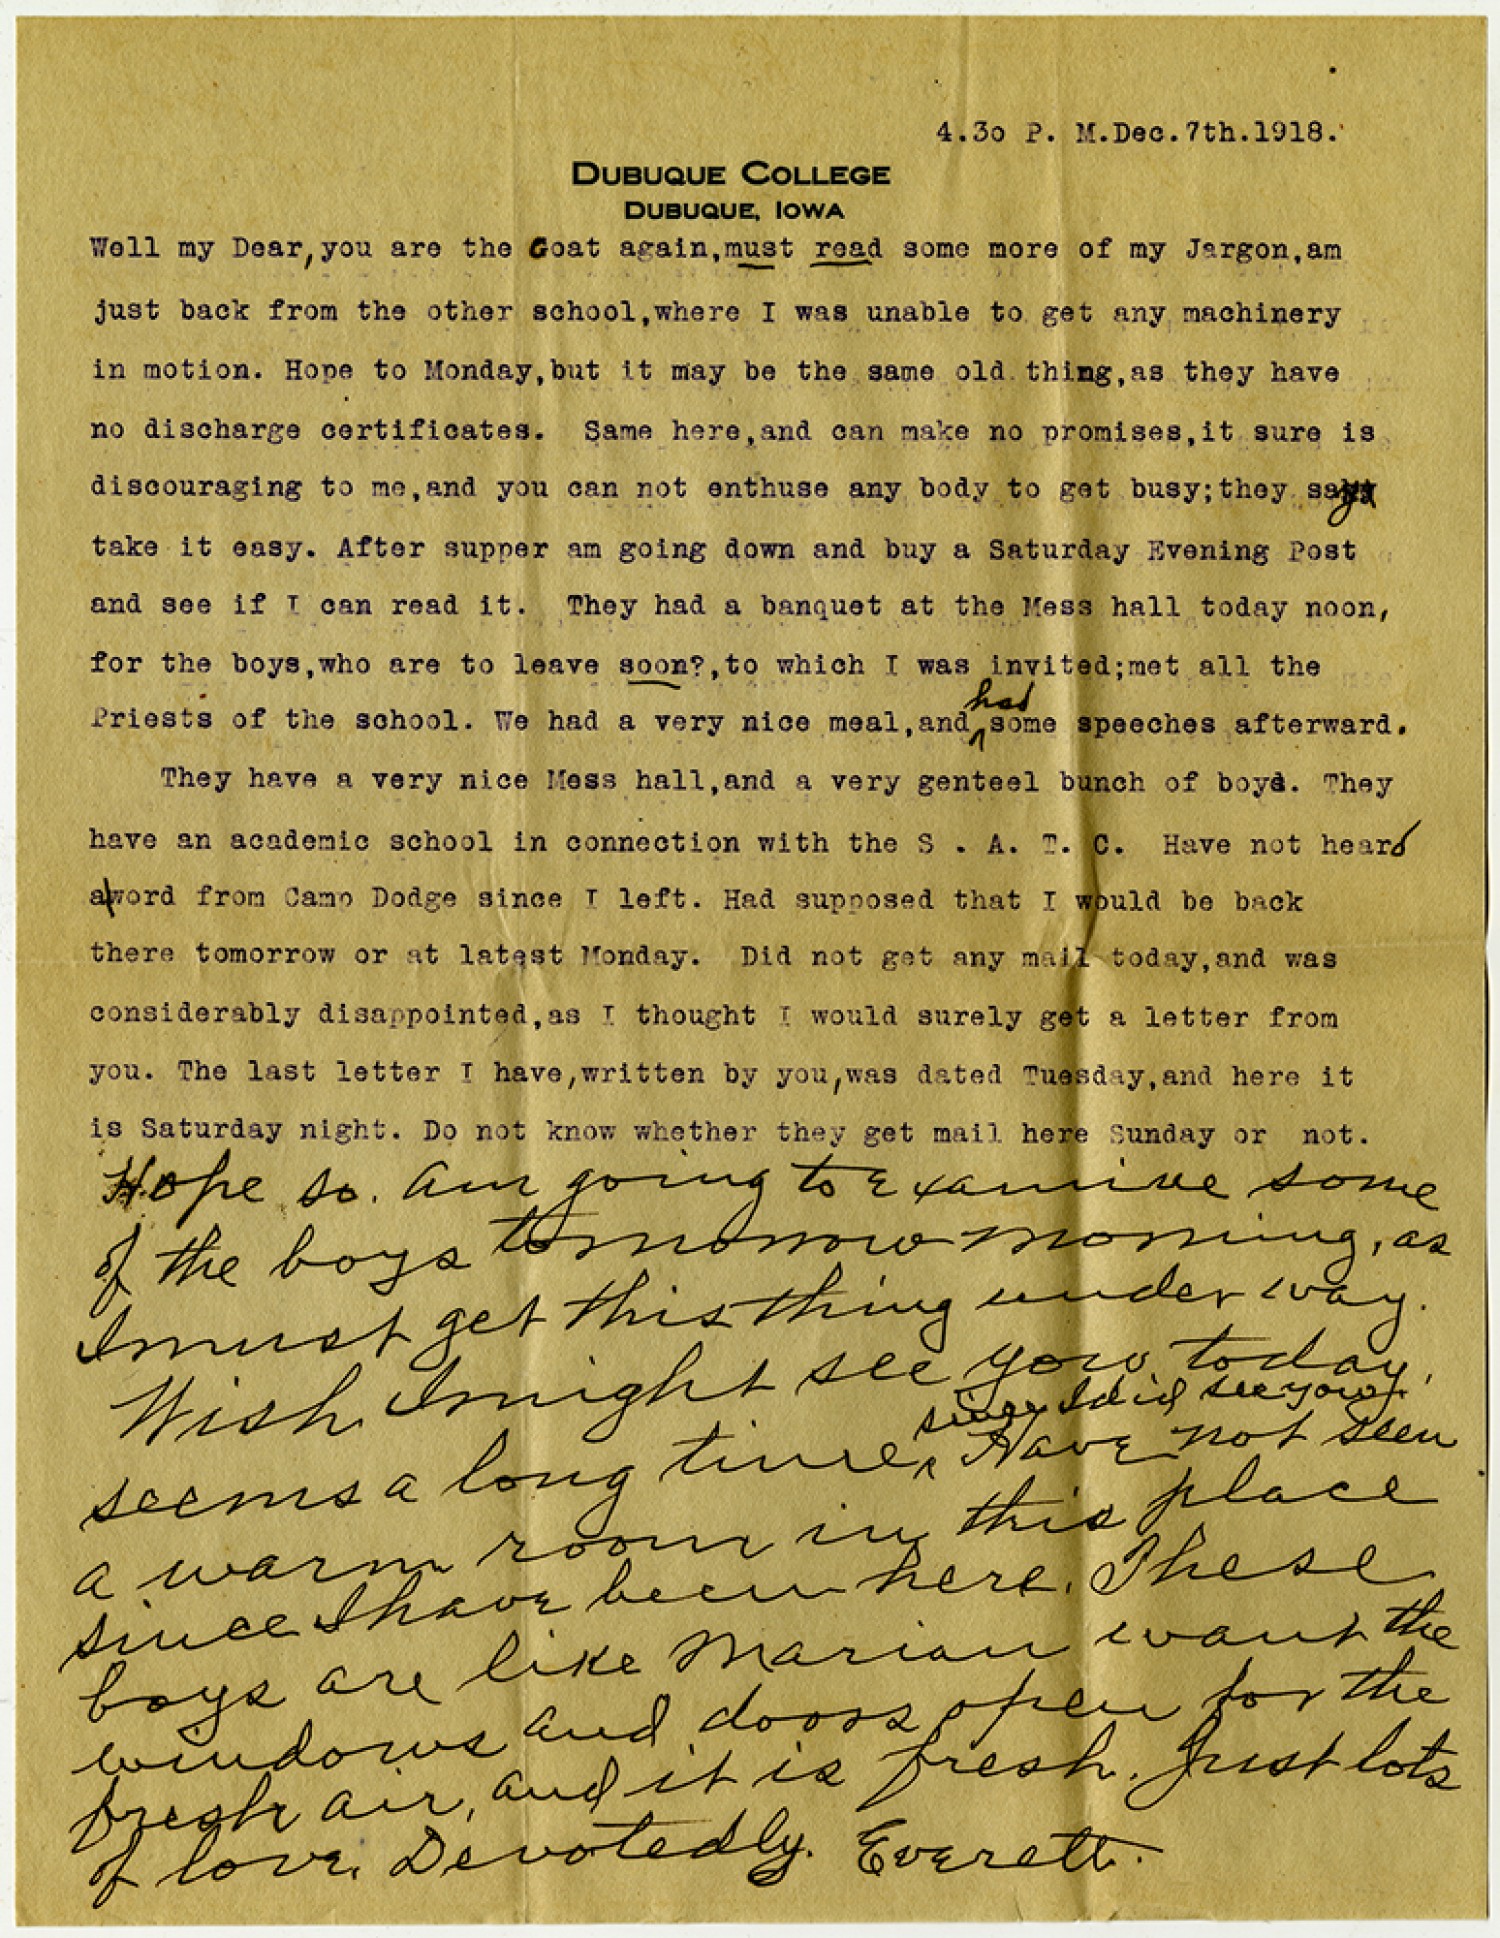 4.30 P. M.Dec.7th.1918.
DUBUQUE COLLEGE
DUBUQUE, IOWA
Well my Dear,you are the Goat again,must read some more of my Jargon,am
just back from the other school,where I was unable to get any machinery
in motion. Hope to Monday,but it may be the same old thing,as they have
no discharge certificates. Same here,and can make no promises,it sure is
discouraging to me,and you can not enthuse any body to get busy;they say
take it easy. After supper am going down and buy a Saturday Evening Post
and see if I can read it. They had a banquet at the Mess hall today noon,
for the boys,who are to leave soon?,to which I was invited;met all the
Priests of the school. We had a very nice meal,and had some speeches afterward.
They have a very nice Mess hall,and a very genteel bunch of boys. They
have an academic school in connection with the S . A. T. C. Have not heard
a word from Camp Dodge since I left. Had supposed that I would be back
there tomorrow or at latest Monday. Did not get any mail today,and was
considerably disappointed,as I thought I would surely get a letter from
you. The last letter I have,written by you,was dated Tuesday,and here it
is Saturday night. Do not know whether they get mail here Sunday or not.
Hope so. Am going to Examine some
of the boys tomorrow morning, as
I must get this thing under way.
Wish I might see you today,
seems a long time since I did see you. Have not seen
a warm room in this place
since I have been here. These
boys are like Marian want the
windows and doors open for the
fresh air, and it is fresh. Just lots
of love. Devotedly. Everett.